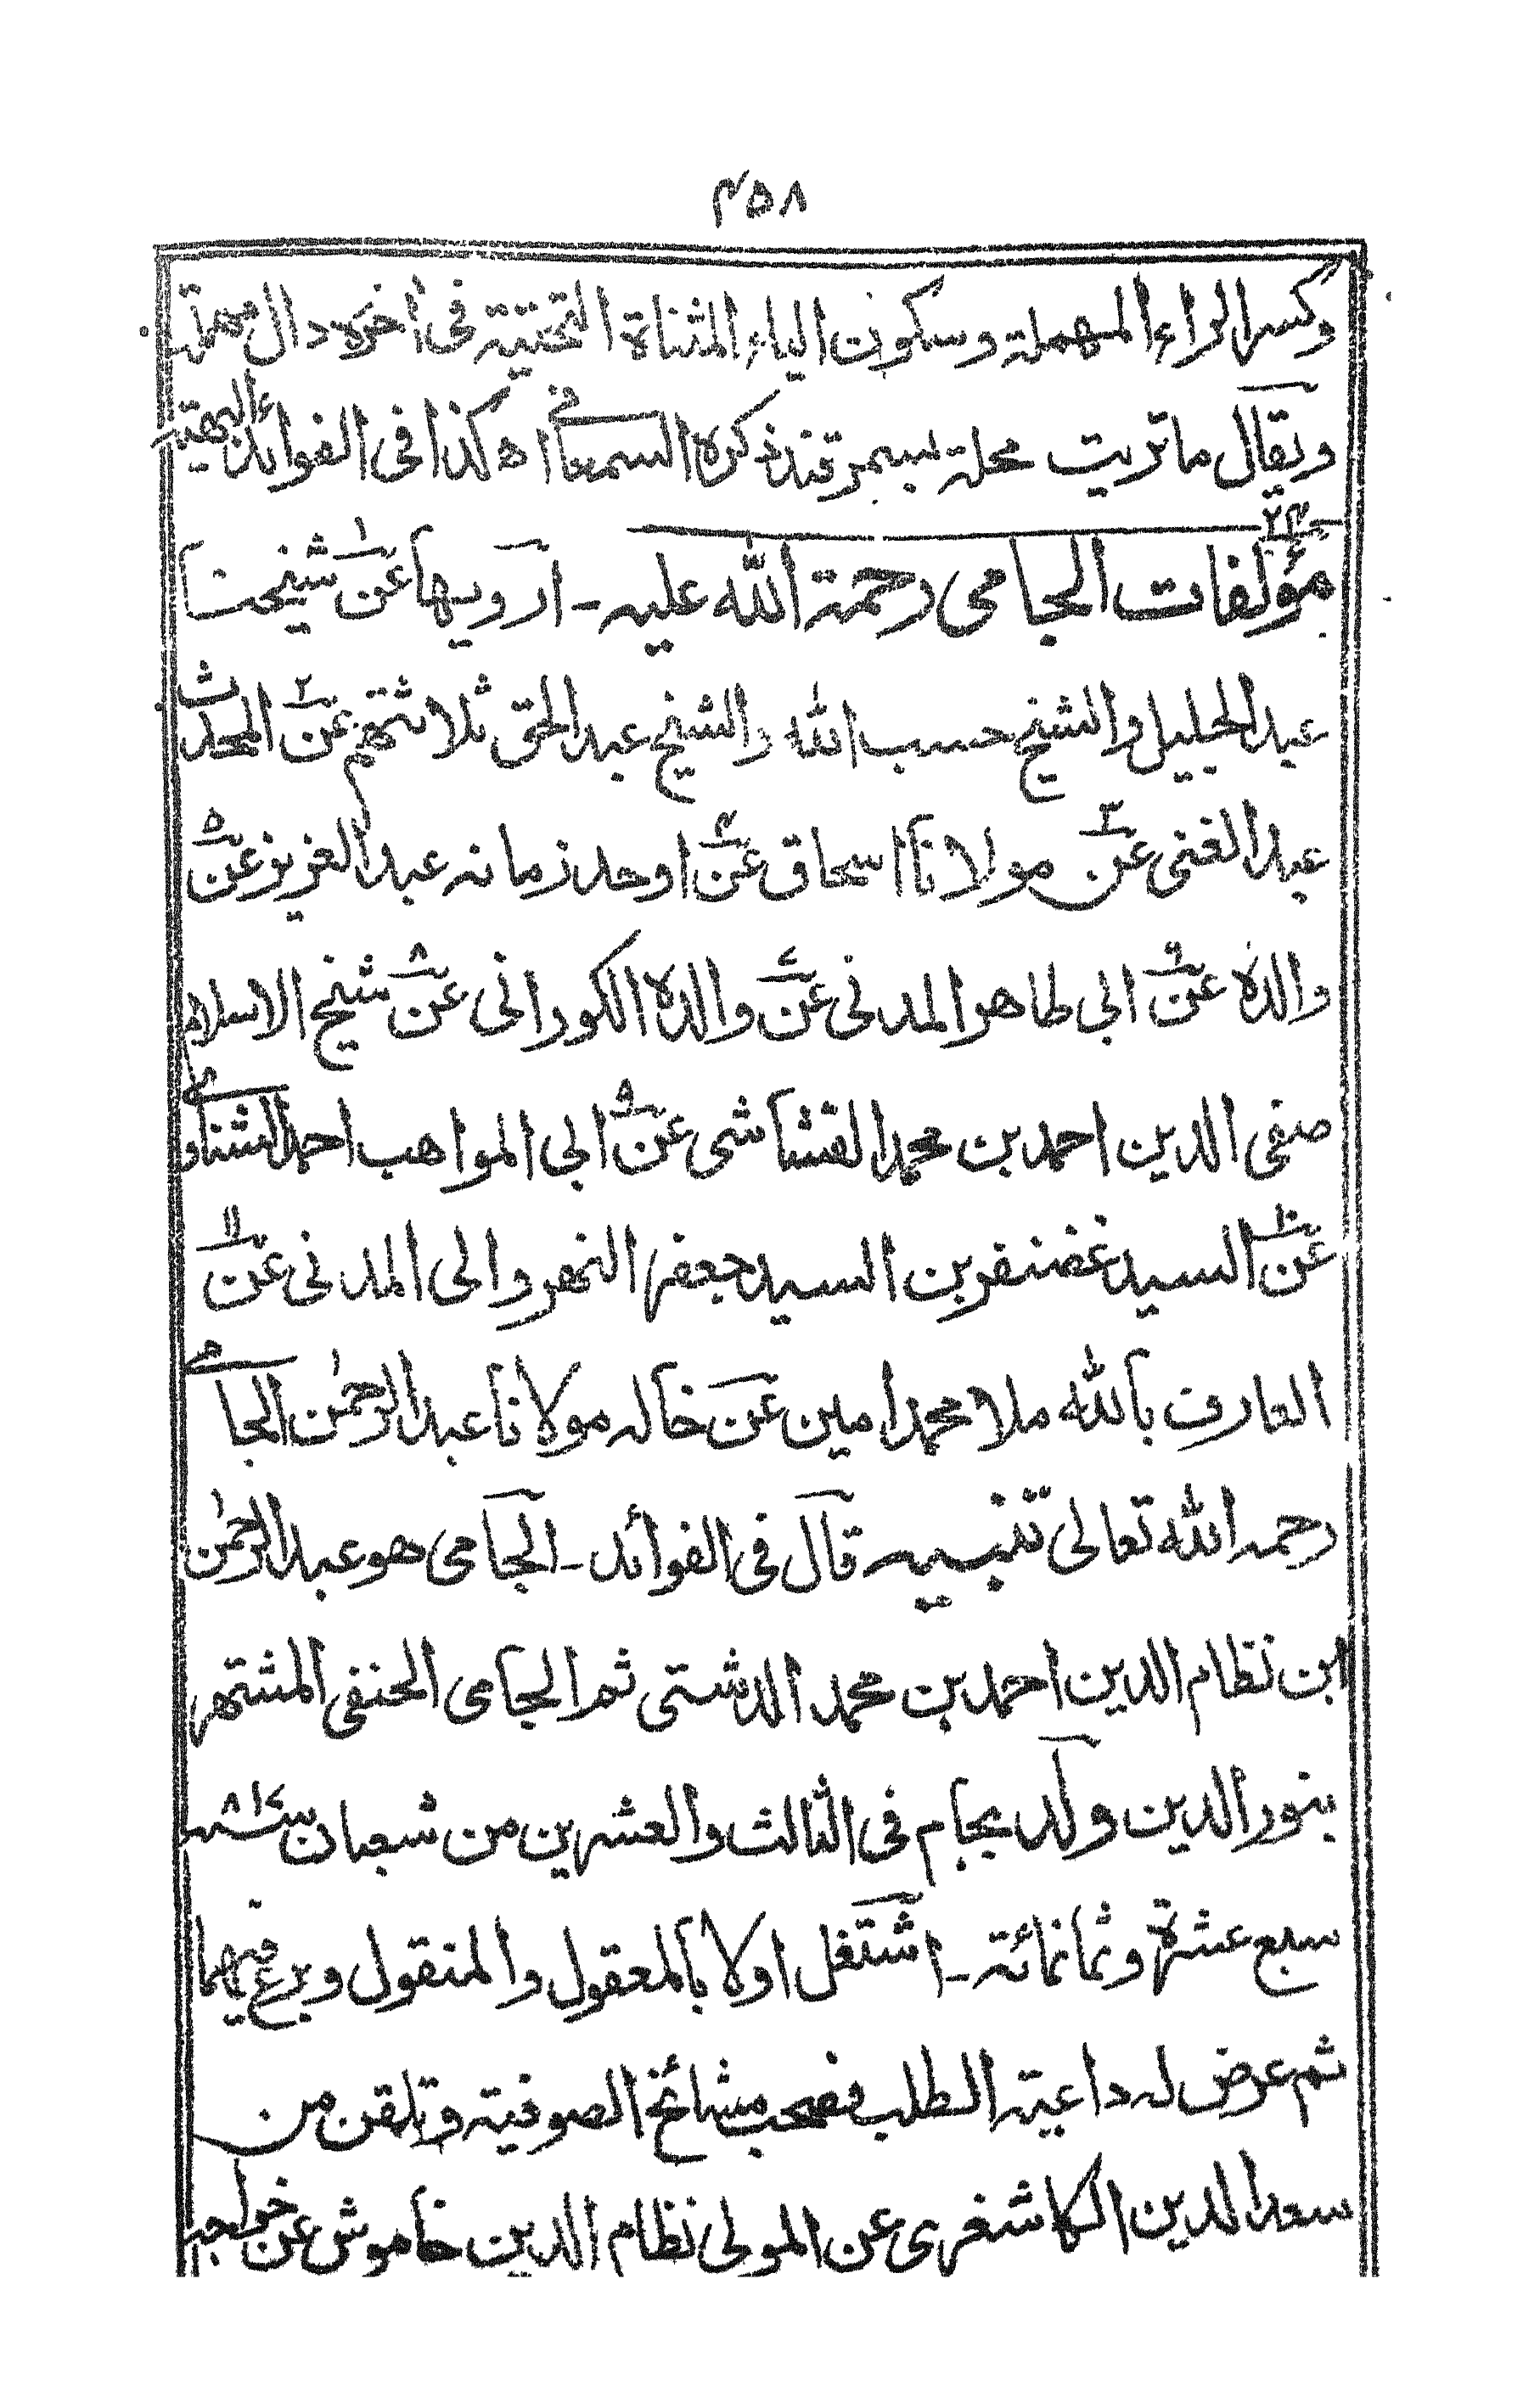 ۴۵۸
وكسر الراء المهملة وسكون الياء المثناة التحتية فى اخره دال مهملة
ويقال ماتريت محلة بسمرقند ذكره السمعانى اه كذا فى الفوائد البهية
۲۴
مؤلفات الجامى رحمة الله عليه - ارويها عن۱ شيخنا
عبد الجليل والشيخ حسب الله والشيخ عبد الحق ثلاثتهم عن۲ المحدث
عبد الغنى عن۳ مولانا اسحاق عن۴ اوحد زمانه عبد العزيز عن۵
والده عن۶ ابى طاهر المدنى عن۷ والده الكورانى عن۸ شيخ الاسلام
صفى الدين احمد بن محمد القشاشى عن۹ ابى المواهب احمد الشناوى
عن۱۰ السيد غضنفر بن السيد جعفر النهروالى المدنى عن۱۱
العارف بالله ملا محمد امين عن خاله مولانا عبد الرحمٰن الجامى
رحمه الله تعالى تنبيه قال فى الفوائد - الجامى هو عبد الرحمٰن
ابن نظام الدين احمد بن محمد الدشتى ثم الجامى الحنفى المشتهر
بنور الدين ولد بجام فى الثالث والعشرين من شعبان سنة ۸۱۷
سبع عشرة وثمانمائة - اشتغل اولا بالمعقول والمنقول وبرع فيهما
ثم عرض له داعية الطلب فصحب مشائخ الصوفية وتلقن من
سعد الدين الكاشغرى عن المولى نظام الدين خاموش عن خواجه